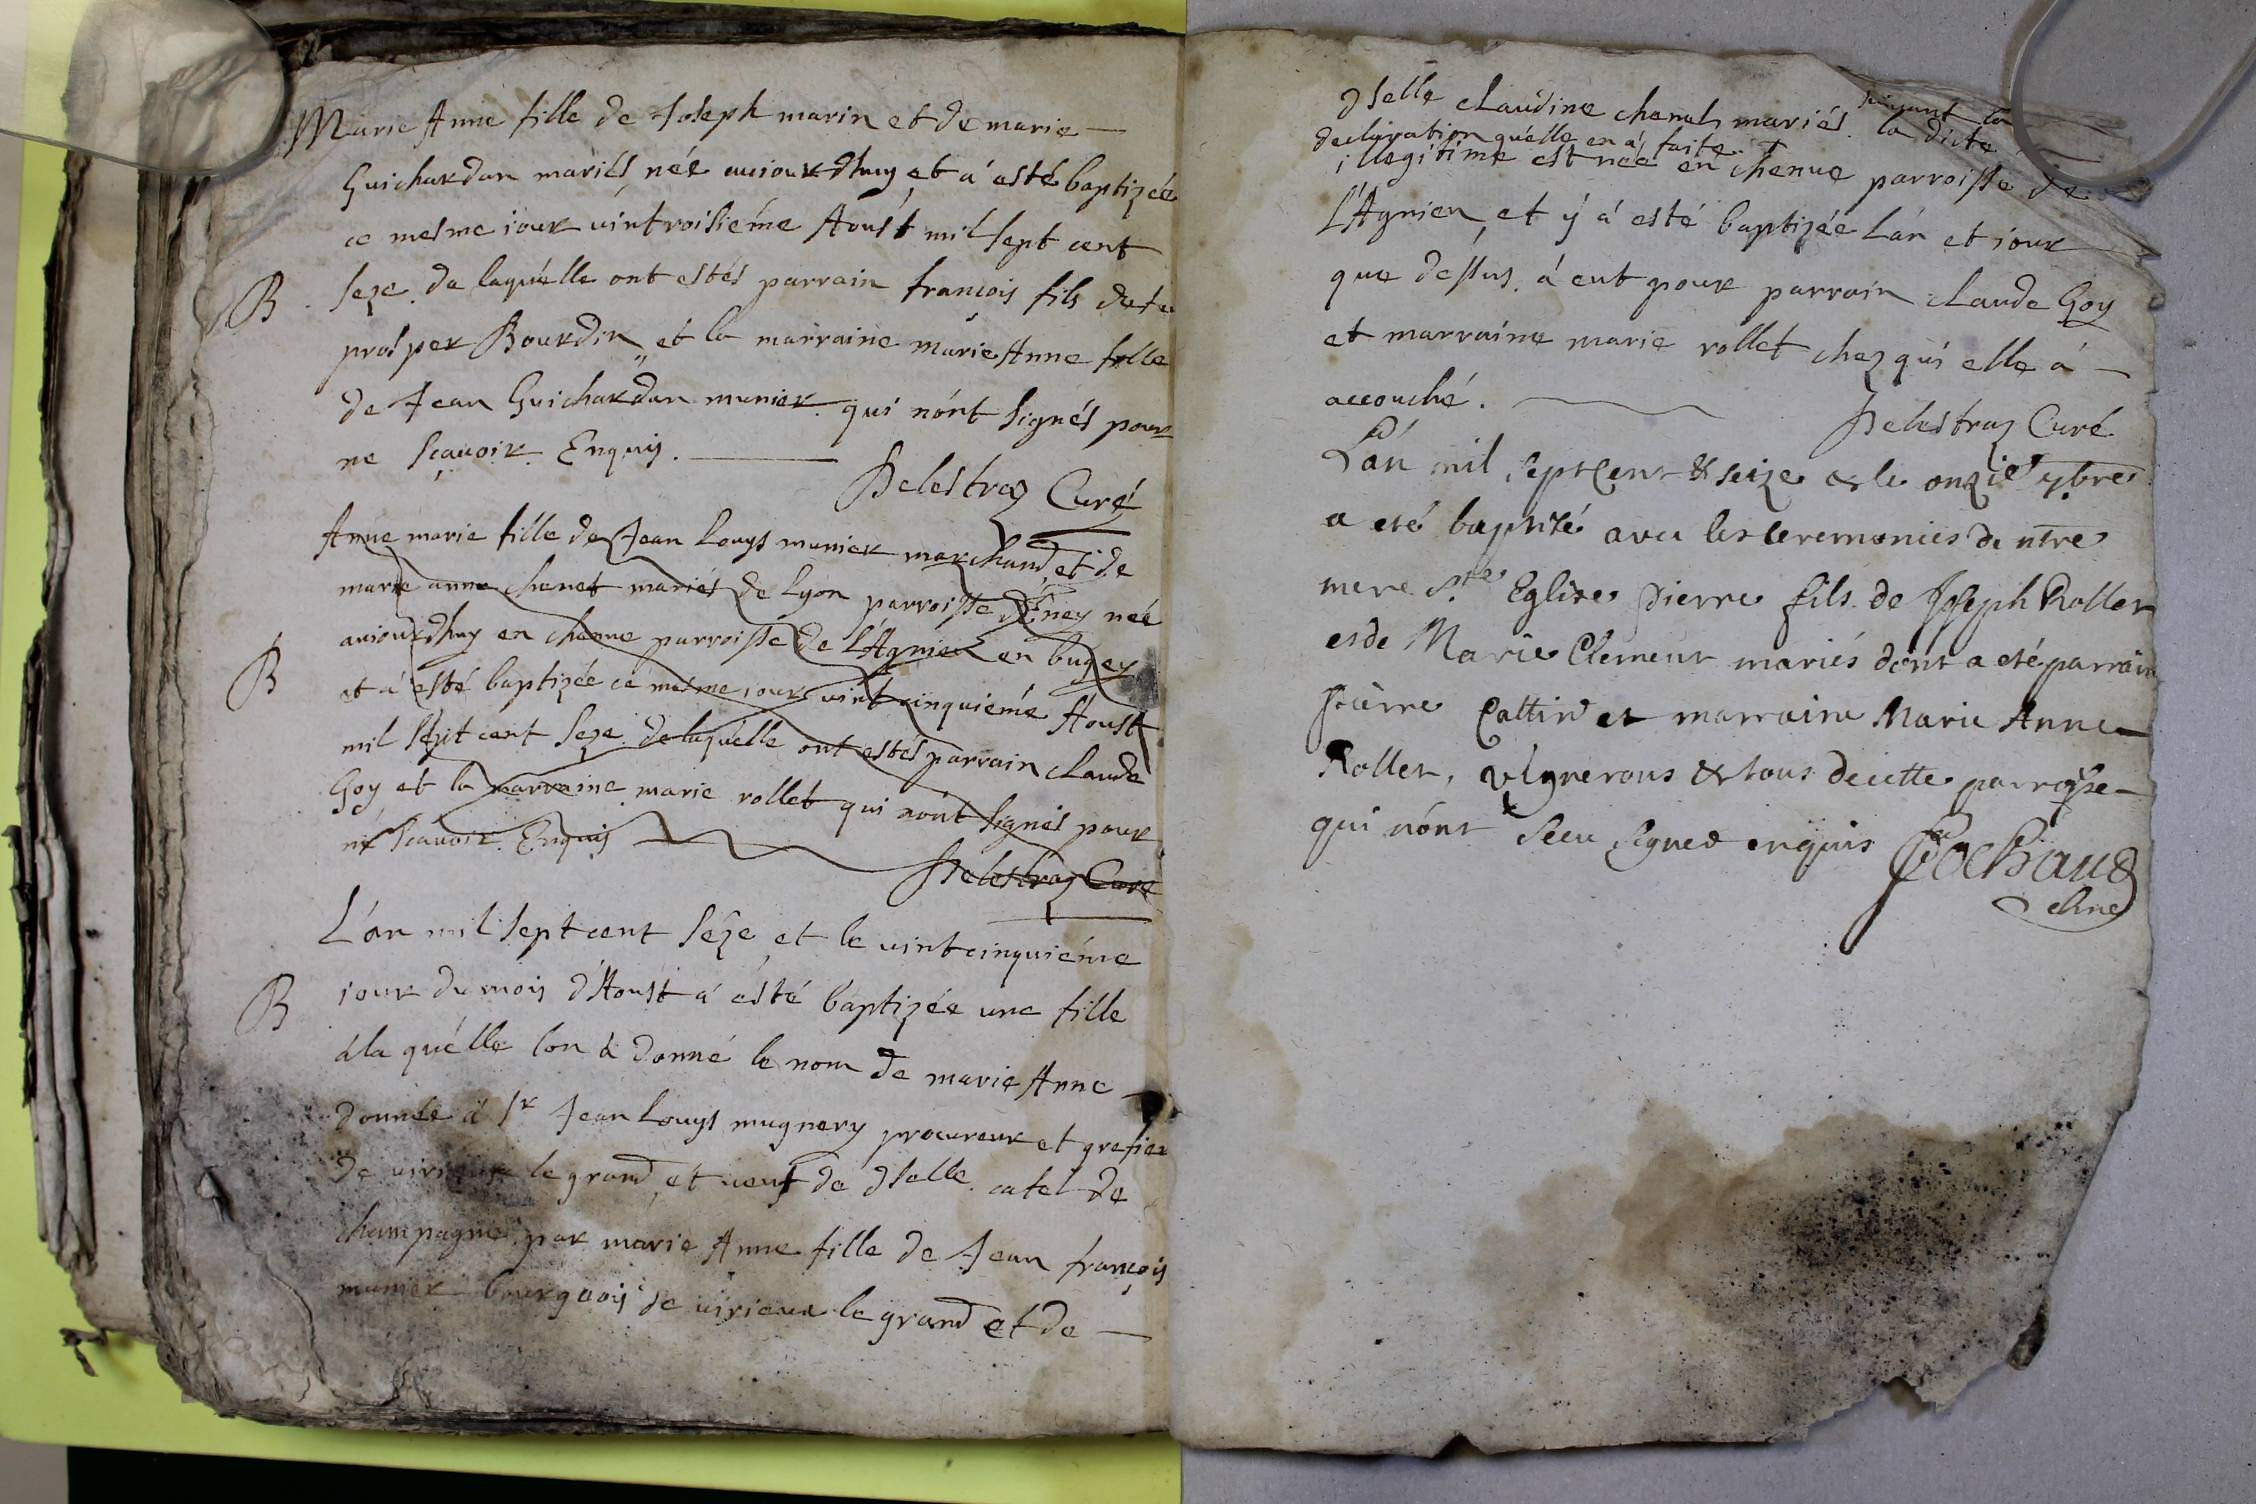 Marie Anne fille de Joseph marin et de marie
Guichardan mariés, née auiourdhuy et a'esté baptizée
ce mesme iour vintroisiéme Aoust mil sept cent
B
seze. de laquélle ont estés parrain francois fils de feu
prosper Bourdin, et la marraine marie Anne fille
de Jean Guichardan munier. qui nónt signés pour
ne sçauoir. Enquis.
Delestraz Curé
Anne marie fille de Jean Louys munier marchand, et de
marie anne chenet mariés de Lyon parroisse d'Eney née
auiourdhuy en chenue parroisse de l'Agnieu en bugey
B
et a' esté baptizée ce mesme iour vintcinquiéme Aoust
mil sept cent seze. de laquélle ont estés parrain claude
Goy et la marraine marie rollet qui nónt signés pour
ne scauoir. Enquis
Delestraz Curé
L'an mil sept cent séze, et le vintcinquiéme
B
iour du mois d'Aoust a' ésté baptizée une fille
a la quélle lon à donné le nom de marie Anne
donnée a' Sr Jean Louys mugnery procureur et grefier
de virieux le grand, et veuf de dselle catel de
champagne par marie Anne fille de Jean françois
munier bourgeois de virieux le grand et de
dselle claudine mariés. suivant la
declaration quélle en a' faite. la dicte
illegitime est née en chenue parroisse de
L'Agnieu, et y' a' esté baptizée L'an et iour
que dessus. a' eut pour parrain claude Goy
et marraine marie rollet chez qui elle a'
accouché.
Delestraz Curé
L'an mil sept cent & seize & le onzie 7bre
a eté baptizé avec les ceremonies de ntre
mere Ste Eglise pierre fils de Joseph Rollet
et de Marie Clement mariés dont a eté parrain
pierre Cattin et marraine Marie Anne
Rollet, vignerons & tous de cette parroisse
qui nónt sceu signer enquis